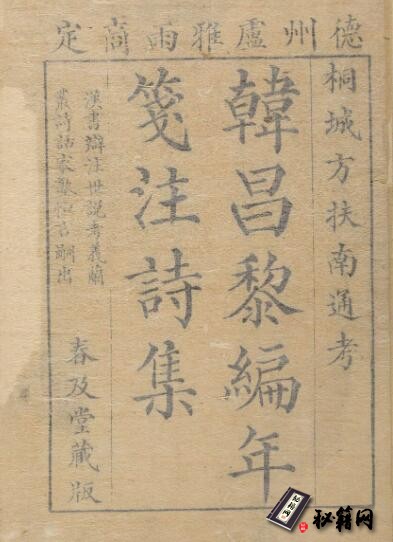 德州盧雅雨商定
桐城方扶南通考
韓昌黎編年
箋注詩集
漢書辯注世說考義蘭
叢詩話家塾恒言嗣出
春及堂藏版
秘籍网